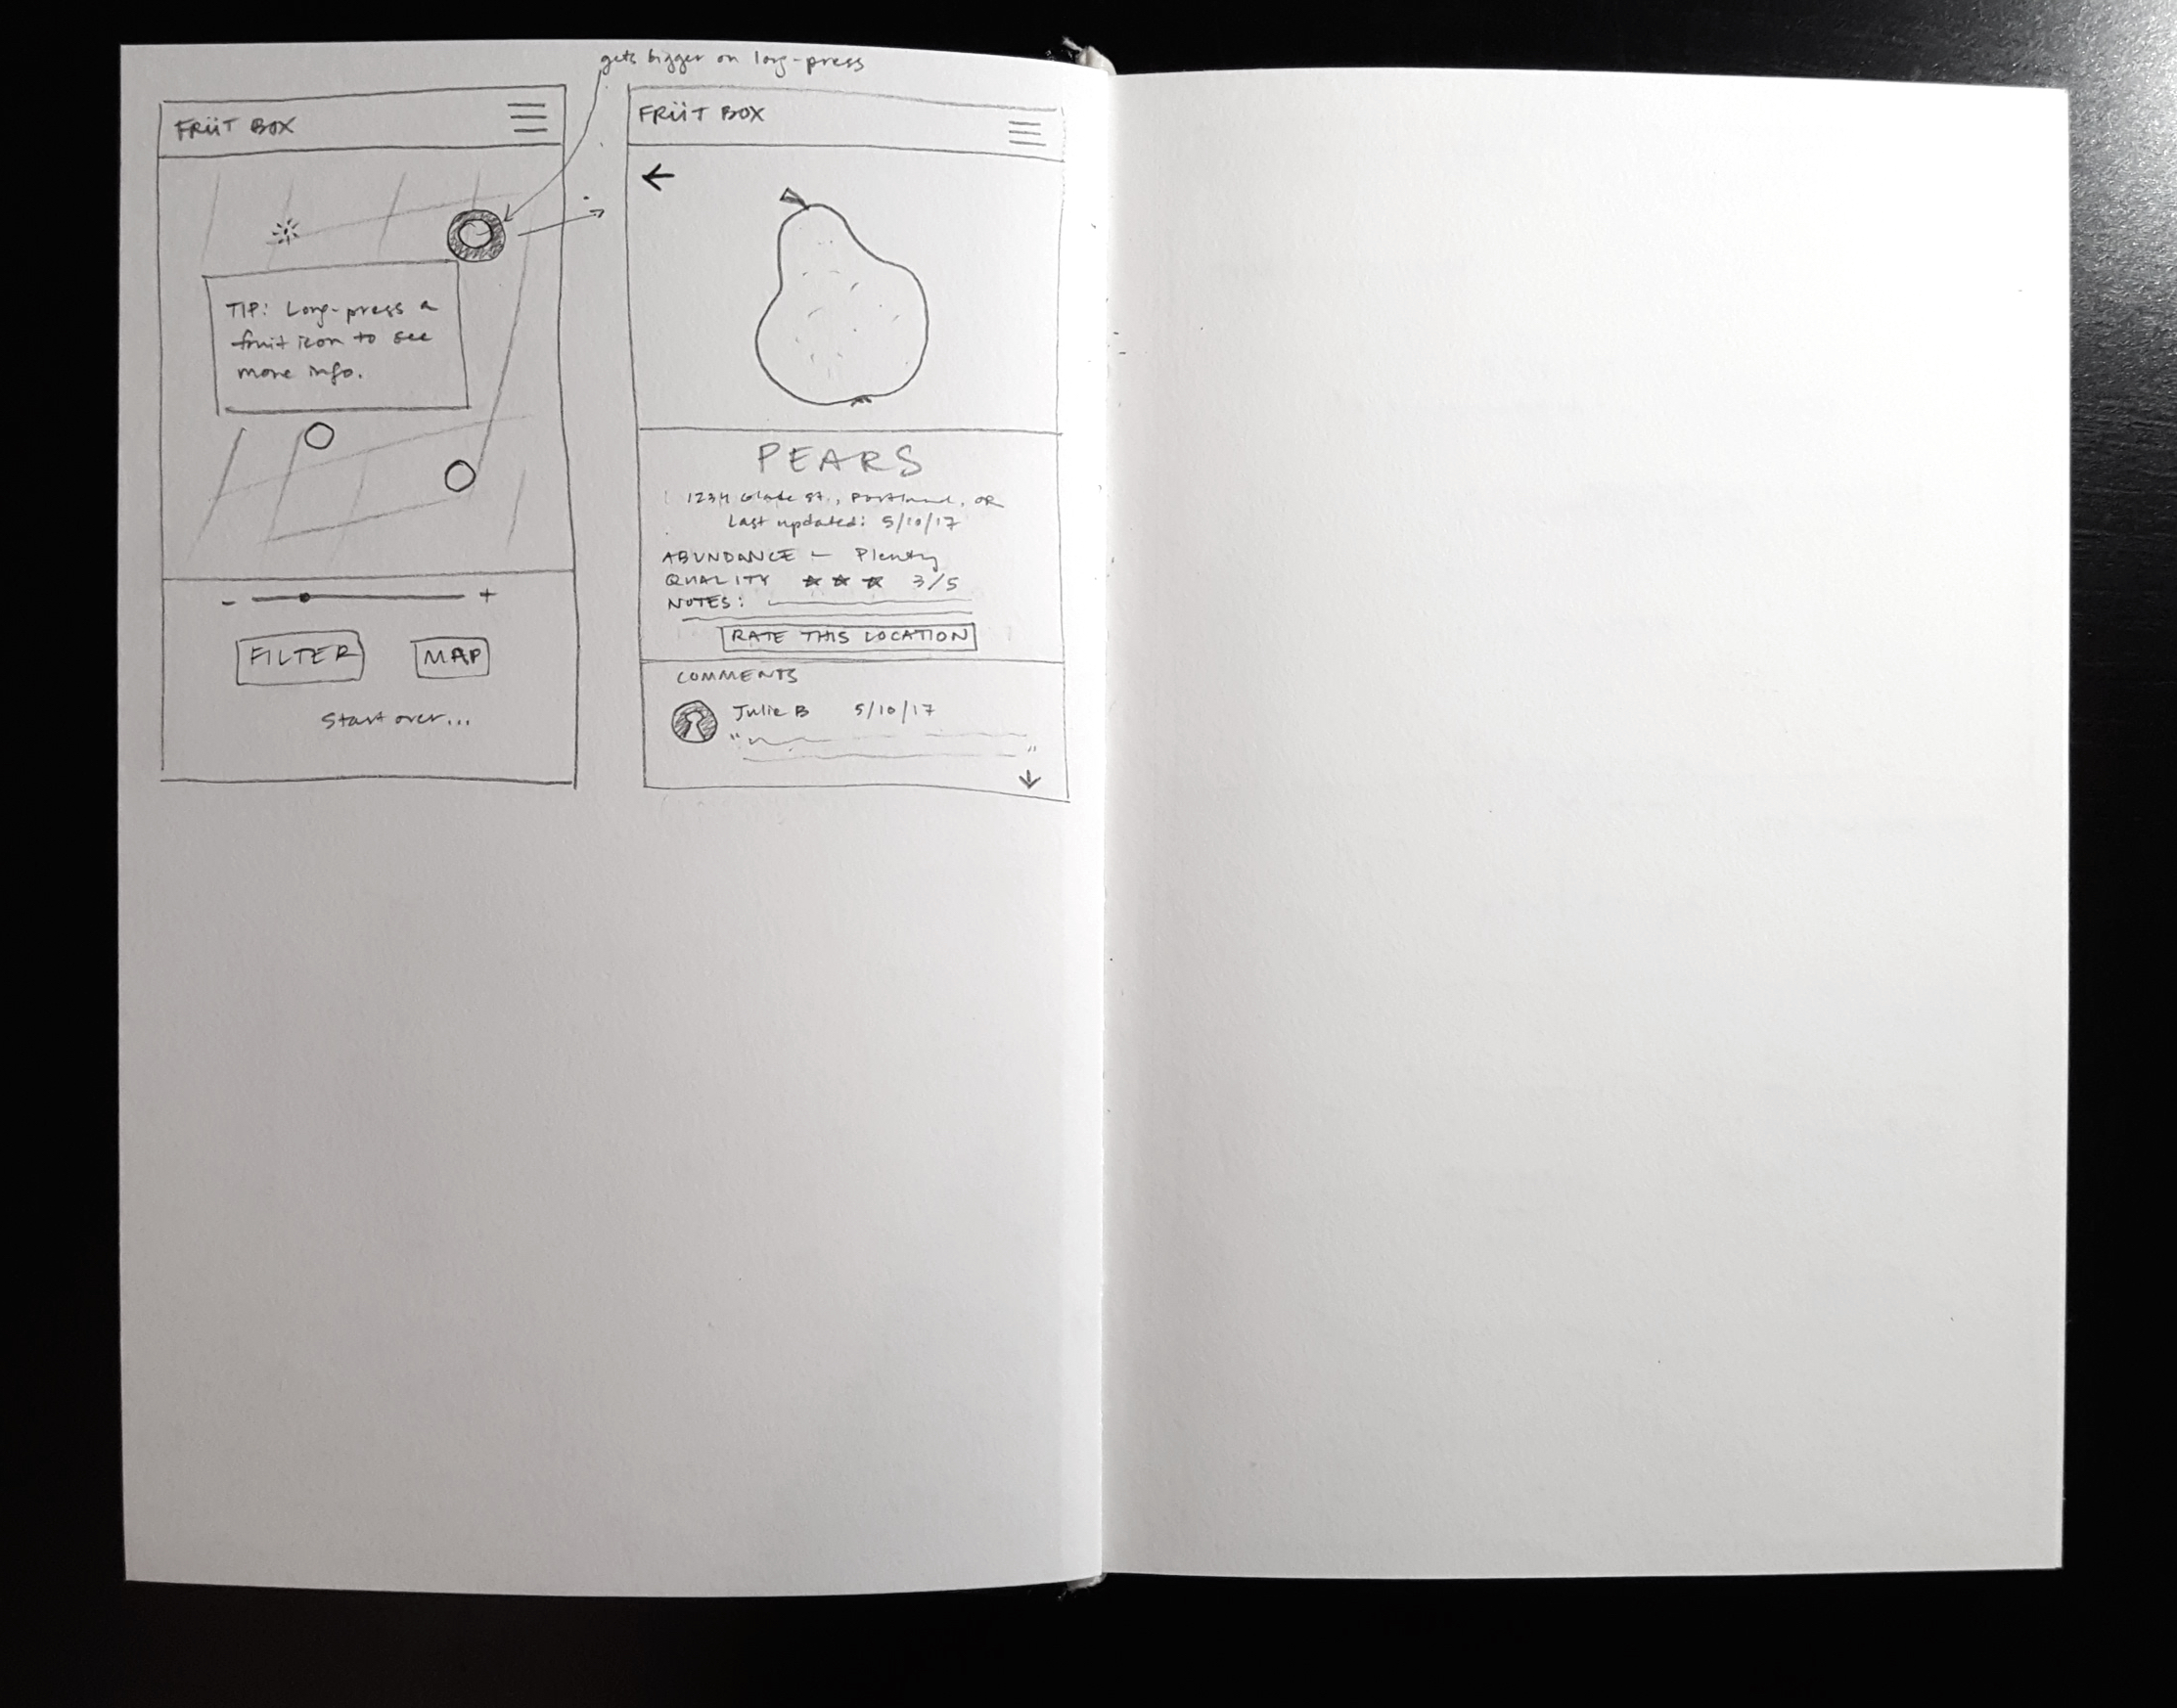 gets bigger on long-press
FRÜIT BOX
TIP: Long-press a
fruit icon to see
more info.
- +
FILTER MAP
Start over...
FRÜIT BOX
PEARS
1234 Glade St., Portland, OR
Last updated: 5/10/17
ABUNDANCE - Plenty
QUALITY ★ ★ ★ 3/5
NOTES:
RATE THIS LOCATION
COMMENTS
Julie B 5/10/17